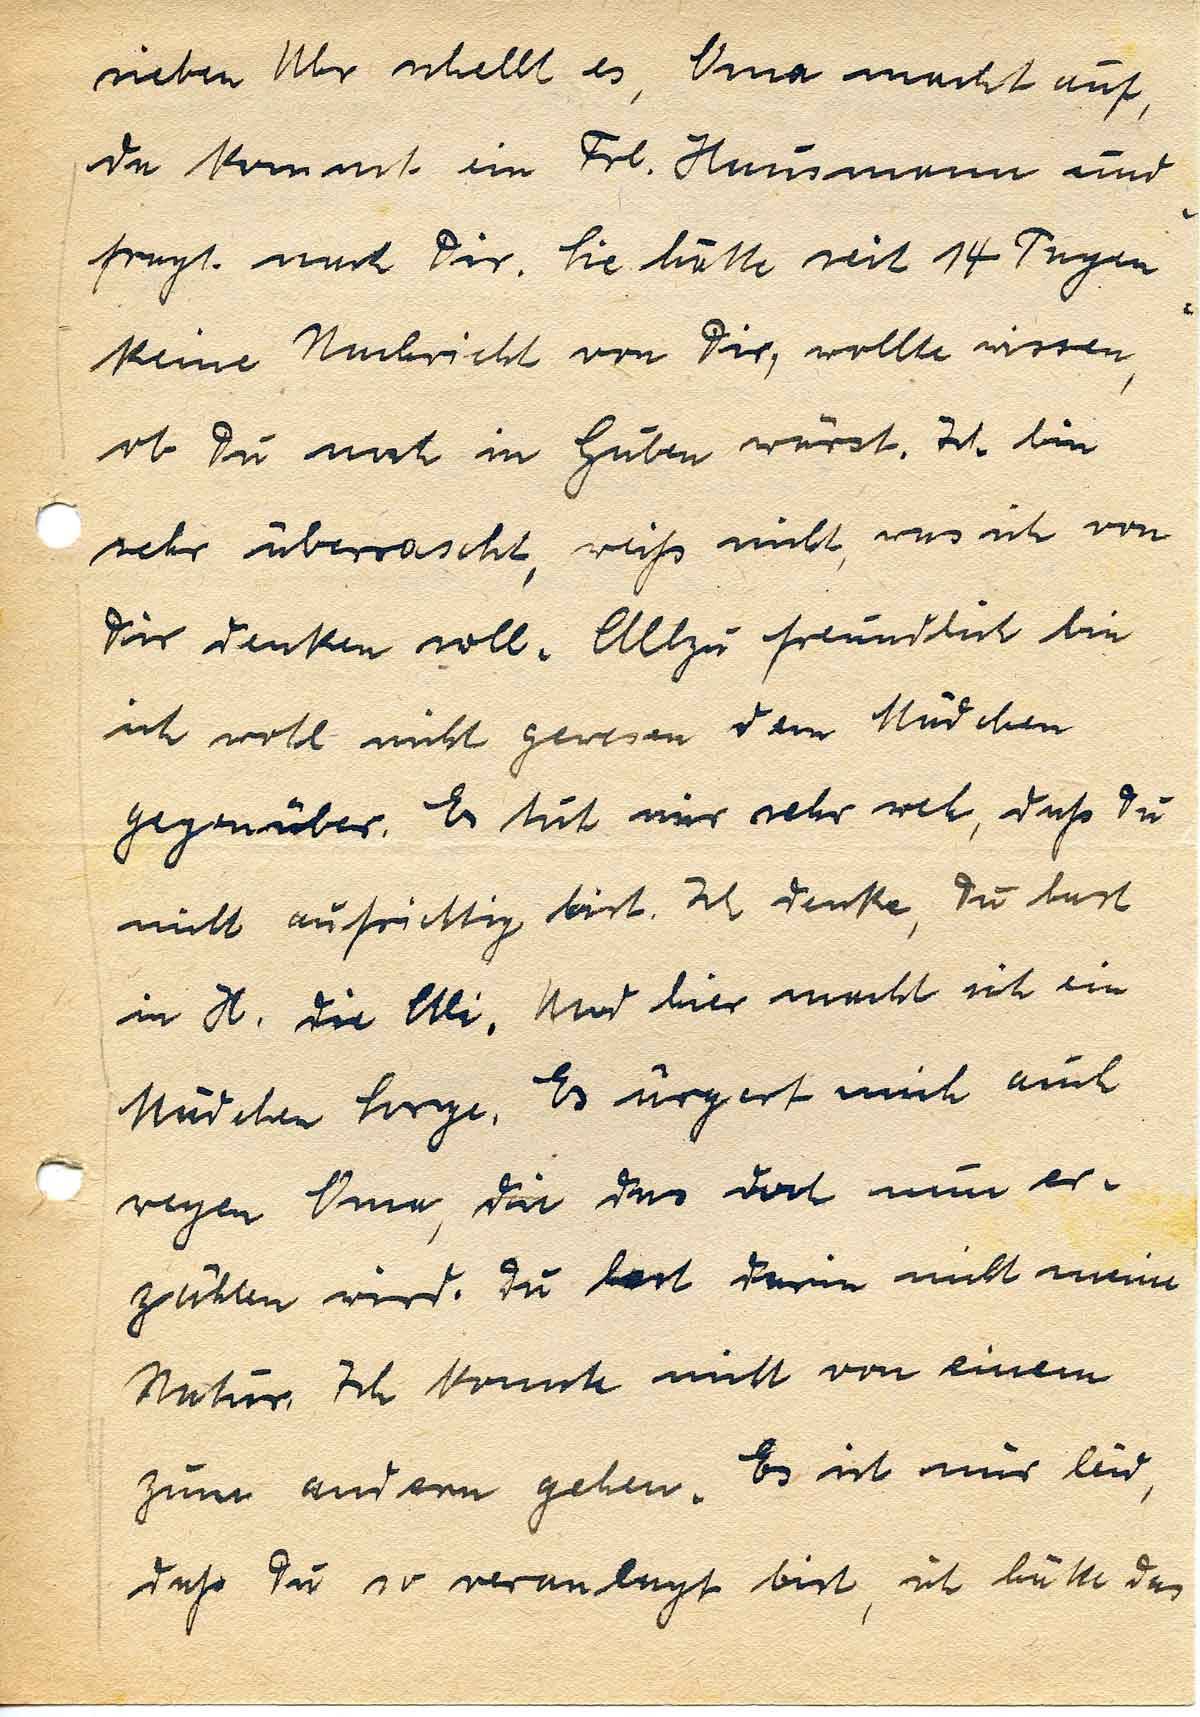 sieben Uhr schellt es, Oma macht auf,
da kommt ein Frl. Hausmann und
fragt nach Dir. Sie hätte seit 14 Tagen
keine Nachricht von Dir, wollte wissen,
ob Du noch in Guben wärst. Ich bin
sehr überrascht, weiß nicht, was ich von
Dir denken soll. Allzu freundlich bin
ich wohl nicht gewesen dem Mädchen
gegenüber. Es tut mir sehr weh, daß Du
nicht aufrichtig bist. Ich denke, Du hast
in H. die Elli. Und hier macht sich ein
Mädchen Sorge. Es ärgert mich auch
wegen Oma, die das doch nun er-
zählen wird. Du hast darin nicht meine
Natur. Ich konnte nicht von einem
zum andern gehen. Es ist mir leid,
daß Du so veranlagt bist, ich hätte das